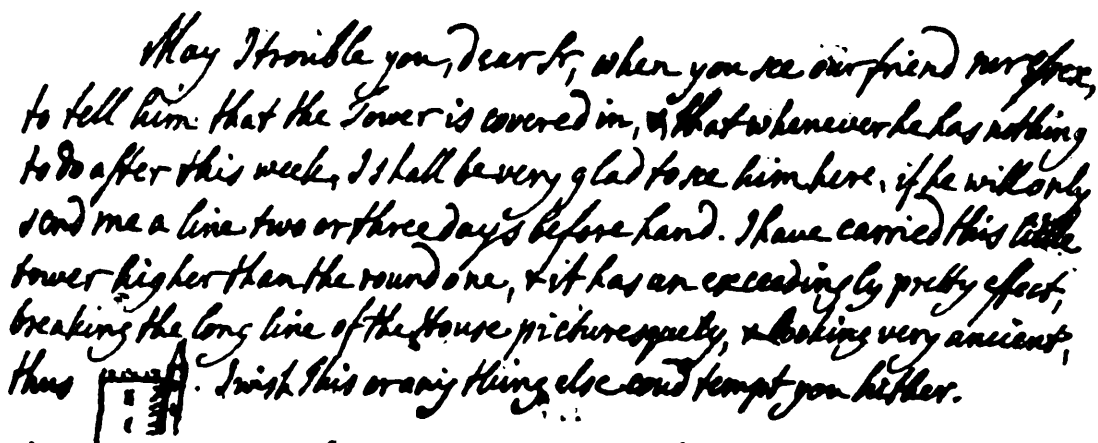 May I trouble you, dear Sr, when you see our friend mr Essex,
to tell him that the Tower is covered in, & that whenever he has nothing
to do after this week, I shall be very glad to see him here, if he will only
send me a line two or three days before hand. I have carried this little
tower higher than the round one, & it has an exceedingly pretty effect,
breaking the long line of the House picturesquely, & looking very ancient,
thus . I wish this or any thing else coud tempt you hither.